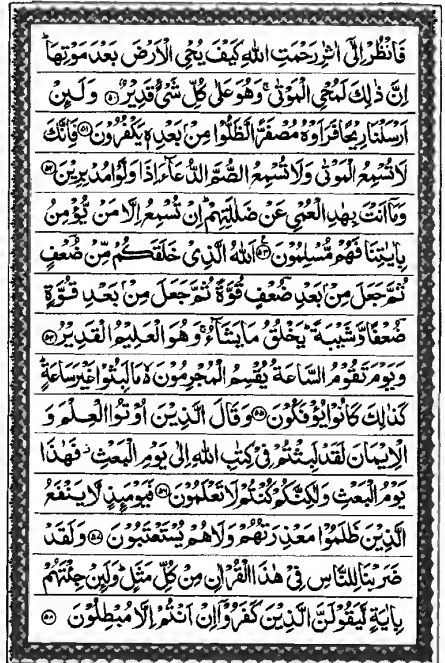 فَانْظُرْ اِلٰٓى اٰثٰرِ رَحْمَتِ اللّٰهِ كَيْفَ يُحْيِ الْاَرْضَ بَعْدَ مَوْتِهَا ؕ
اِنَّ ذٰلِكَ لَمُحْيِ الْمَوْتٰى ۚ وَهُوَ عَلٰى كُلِّ شَيْءٍ قَدِيْرٌ ﴿۵۰﴾ وَلَىِٕنْ
اَرْسَلْنَا رِيْحًا فَرَاَوْهُ مُصْفَرًّا لَّظَلُّوْا مِنْۢ بَعْدِهٖ يَكْفُرُوْنَ ﴿۵۱﴾ فَاِنَّكَ
لَا تُسْمِعُ الْمَوْتٰى وَلَا تُسْمِعُ الصُّمَّ الدُّعَآءَ اِذَا وَلَّوْا مُدْبِرِيْنَ ﴿۵۲﴾
وَمَاۤ اَنْتَ بِهٰدِ الْعُمْيِ عَنْ ضَلٰلَتِهِمْ ؕ اِنْ تُسْمِعُ اِلَّا مَنْ يُّؤْمِنُ
بِاٰيٰتِنَا فَهُمْ مُّسْلِمُوْنَ ﴿۵۳﴾ اَللّٰهُ الَّذِيْ خَلَقَكُمْ مِّنْ ضُعْفٍ
ثُمَّ جَعَلَ مِنْۢ بَعْدِ ضُعْفٍ قُوَّةً ثُمَّ جَعَلَ مِنْۢ بَعْدِ قُوَّةٍ
ضُعْفًا وَّشَيْبَةً ؕ يَخْلُقُ مَا يَشَآءُ ۚ وَهُوَ الْعَلِيْمُ الْقَدِيْرُ ﴿۵۴﴾
وَيَوْمَ تَقُوْمُ السَّاعَةُ يُقْسِمُ الْمُجْرِمُوْنَ ۙ مَا لَبِثُوْا غَيْرَ سَاعَةٍ ؕ
كَذٰلِكَ كَانُوْا يُؤْفَكُوْنَ ﴿۵۵﴾ وَقَالَ الَّذِيْنَ اُوْتُوا الْعِلْمَ وَ
الْاِيْمَانَ لَقَدْ لَبِثْتُمْ فِيْ كِتٰبِ اللّٰهِ اِلٰى يَوْمِ الْبَعْثِ ؗ فَهٰذَا
يَوْمُ الْبَعْثِ وَلٰكِنَّكُمْ كُنْتُمْ لَا تَعْلَمُوْنَ ﴿۵۶﴾ فَيَوْمَىِٕذٍ لَّا يَنْفَعُ
الَّذِيْنَ ظَلَمُوْا مَعْذِرَتُهُمْ وَلَا هُمْ يُسْتَعْتَبُوْنَ ﴿۵۷﴾ وَلَقَدْ
ضَرَبْنَا لِلنَّاسِ فِيْ هٰذَا الْقُرْاٰنِ مِنْ كُلِّ مَثَلٍ ؕ وَلَىِٕنْ جِئْتَهُمْ
بِاٰيَةٍ لَّيَقُوْلَنَّ الَّذِيْنَ كَفَرُوْۤا اِنْ اَنْتُمْ اِلَّا مُبْطِلُوْنَ ﴿۵۸﴾